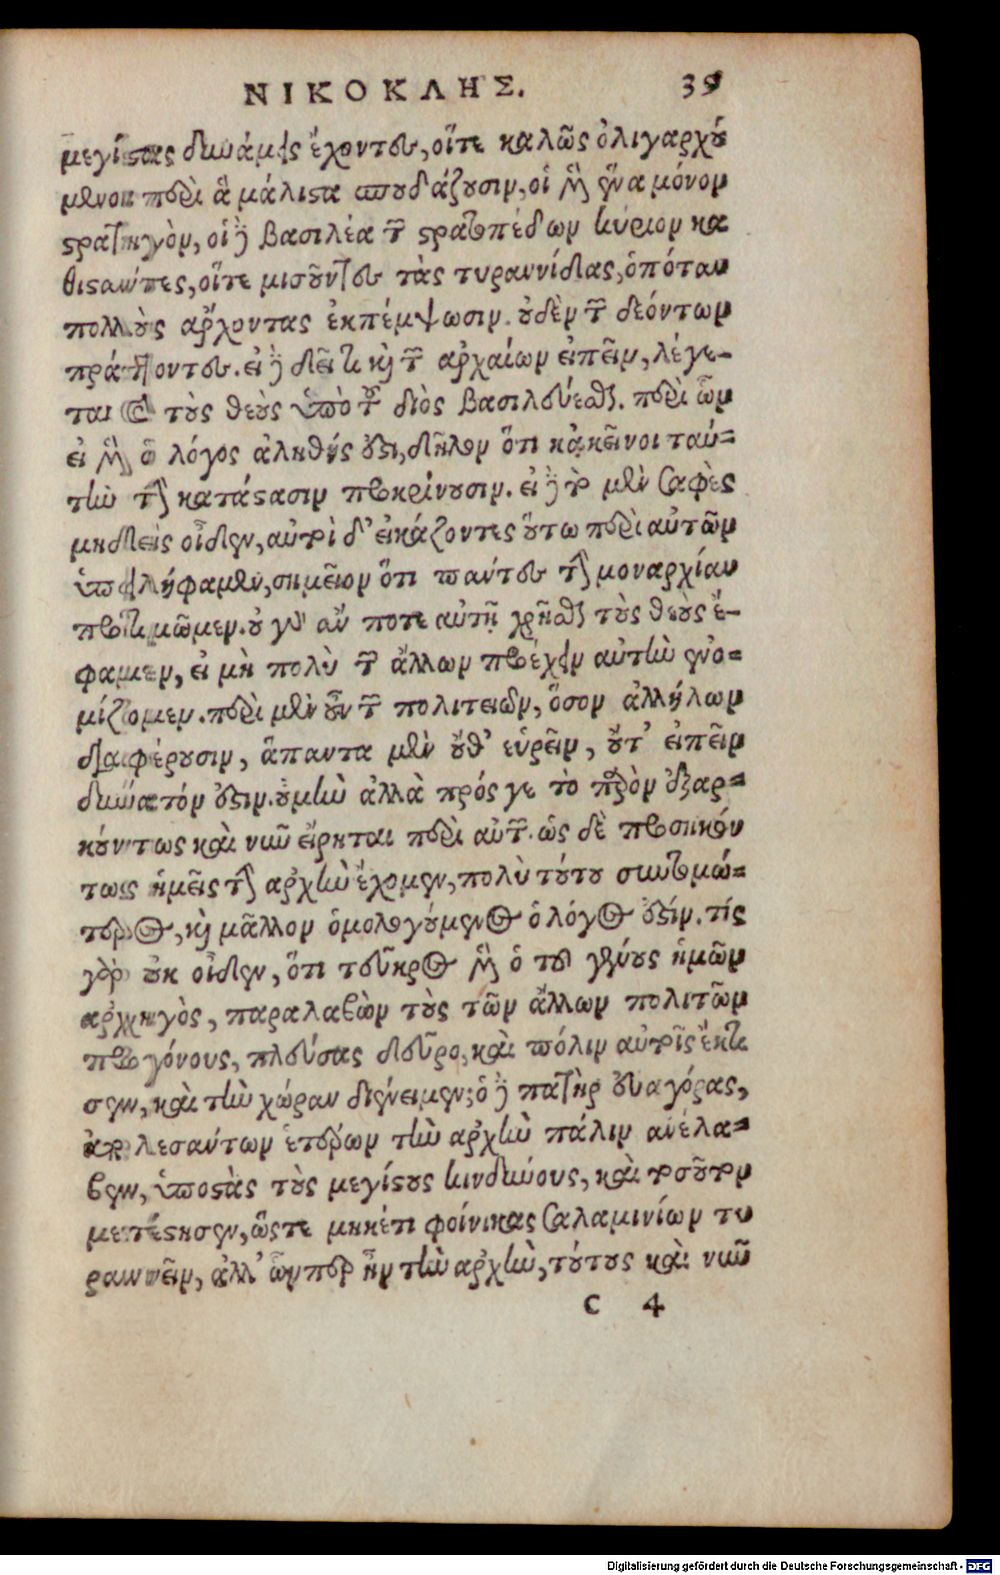 ΝΙΚΟΚΛΗΣ. 39
μεγίστας δυνάμεις ἔχοντας, οἵτε καλῶς ὀλιγαρχού
μενοι περὶ ἃ μάλιστα σπουδάζουσιν, οἱ μὲν ἕνα μόνον
στρατηγὸν, οἱ δὲ βασιλέα τῶν στρατοπέδων κύριον κα
θιστάντες, οἵτε μισοῦντες τὰς τυραννίδας, ὁπόταν
πολλοὺς ἄρχοντας ἐκπέμψωσιν. οὐδὲν τῶν δεόντων
πράττοντας. εἰ δὲ δεῖ τι καὶ τῶν ἀρχαίων εἰπεῖν, λέγε-
ται καὶ τοὺς θεοὺς ὑπὸ τοῦ διὸς βασιλεύεσθαι. περὶ ὧν
εἰ μὲν ὁ λόγος ἀληθής ἐστι, δῆλον ὅτι κἀκεῖνοι ταύ=
την τὴν κατάστασιν προκρίνουσιν. εἰ δὲ τὸ μὲν σαφὲς
μηδεὶς οἶδεν, αὐτοὶ δ' εἰκάζοντες οὕτω περὶ αὐτῶν
ὑπειλήφαμεν, σημεῖον ὅτι πάντες τὴν μοναρχίαν
προτιμῶμεν. οὐ γὰρ ἄν ποτε αὐτῇ χρῆσθαι τοὺς θεοὺς ἔ-
φαμεν, εἰ μὴ πολὺ τῶν ἄλλων προέχειν αὐτὴν ἐνο=
μίζομεν. περὶ μὲν οὖν τῶν πολιτειῶν, ὅσον ἀλλήλων
διαφέρουσιν, ἅπαντα μὲν οὔθ' εὑρεῖν, οὔτ' εἰπεῖν
δυνατόν ἐστιν. οὐ μὴν ἀλλὰ πρός γε τὸ παρὸν ἐξαρ=
κούντως καὶ νῦν εἴρηται περὶ αὐτῶν. ὡς δὲ προσηκόν
τως ἡμεῖς τὴν ἀρχὴν ἔχομεν, πολὺ τούτου συντομώ=
τερος, καὶ μᾶλλον ὁμολογούμενος ὁ λόγος ἐστίν. τίς
γὰρ οὐκ οἶδεν, ὅτι τεῦκρος μὲν ὁ τοῦ γένους ἡμῶν
ἀρχηγὸς, παραλαβὼν τοὺς τῶν ἄλλων πολιτῶν
προγόνους, πλεύσας δεῦρο, καὶ πόλιν αὐτοῖς ἔκτι
σεν, καὶ τὴν χώραν διένειμεν; ὁ δὲ πατὴρ εὐαγόρας,
ἀπολεσάντων ἑτέρων τὴν ἀρχὴν πάλιν ἀνέλα=
βεν, ὑποστὰς τοὺς μεγίστους κινδύνους, καὶ τοσοῦτον
μετέστησεν, ὥστε μηκέτι φοίνικας σαλαμινίων τυ
ραννεῖν, ἀλλ' ὧνπερ ἦν τὴν ἀρχὴν, τούτους καὶ νῦν
c 4
Digitalisierung gefördert durch die Deutsche Forschungsgemeinschaft - DFG